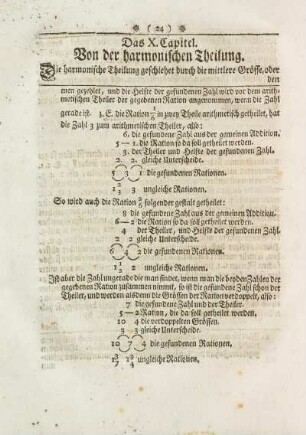 ( 24 )
Das X. Capitel.
Von der harmonischen Theilung.
Die harmonische Theilung geschiehet durch die mittlere Grösse, oder
den
men gezehlet, und die Helfte der gefundenen Zahl wird vor dem arith-
metischen Theiler der gegebenen Ration angenommen, wenn die Zahl
gerade ist. Z. E. die Ration in zwey Theile arithmetisch getheilet, hat
die Zahl 3 zum arithmetischen Theiler, also:
6. die gefundene Zahl aus der gemeinen Addition.
5 — 1. die Ration so da soll getheilet werden.
3. der Theiler und Helfte der gefundenen Zahl.
2. 2. gleiche Unterscheide.
5 3 1 die gefundenen Rationen.
3 ungleiche Rationen.
So wird auch die Ration folgender gestalt getheilet:
8 die gefundene Zahl aus der gemeinen Addition.
6 — 2 die Ration so da soll getheilet werden.
4 der Theiler, und Helfte der gefundenen Zahl.
2 2 gleiche Unterscheide.
6 4 2 die gefundenen Rationen.
1½ 2 ungleiche Rationen.
Ist aber die Zahl ungerade die man findet, wenn man die beyden Zahlen der
gegebenen Ration zusammen nimmt, so ist die gefundene Zahl schon der
Theiler, und werden alsdenn die Grössen der Ration verdoppelt, also:
7 die gefundene Zahl und der Theiler.
5 — 2 Ration, die da soll getheilet werden.
10 4 die verdoppelten Grössen.
3 3 gleiche Unterscheide.
10 7 4 die gefundenen Rationen,
ungleiche Rationen,